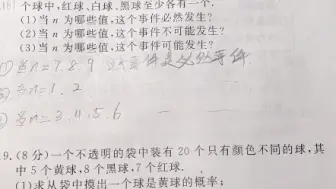 个球中,红球、白球、黑球至少各有一个.
(1)当 n 为哪些值,这个事件必然发生?
(2)当 n 为哪些值,这个事件不可能发生?
(3)当 n 为哪些值,这个事件可能发生?
① 当n=7.8.9 这个事件是必然事件
② 当n=1.2
③ 当n=3.4.5.6
9.(8 分)一个不透明的袋中装有 20 个只有颜色不同的球,其
中 5 个黄球,8 个黑球,7 个红球.
(1)求从袋中摸出一个球是黄球的概率;